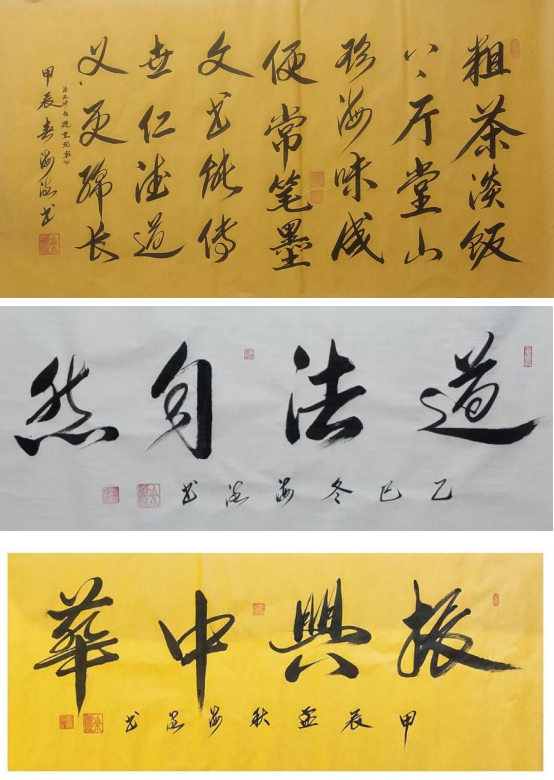 粗茶淡饭
厅堂山
珍海味成
便常笔墨
文书能传
世仁德道
义更绵长
甲辰春海书
道法自然
乙巳冬海书
振興中華
甲辰孟秋海书